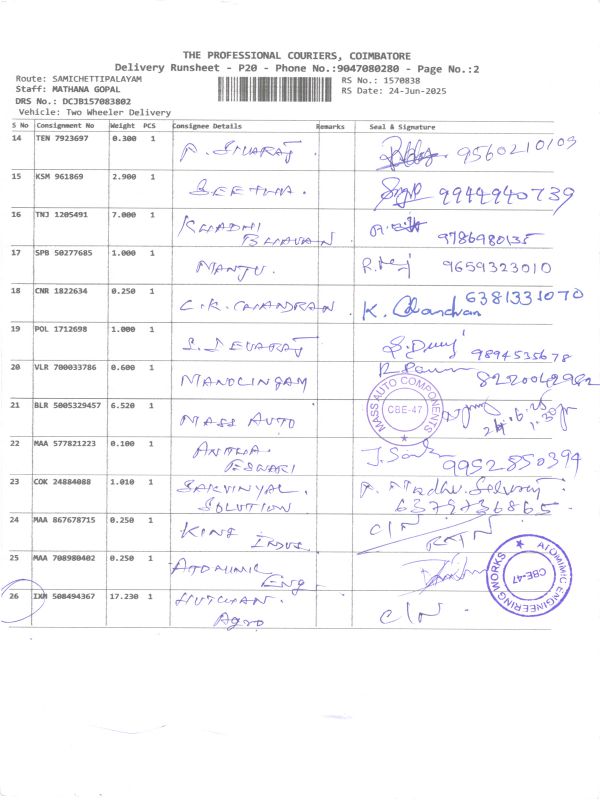 THE PROFESSIONAL COURIERS, COIMBATORE
Delivery Runsheet - P20 - Phone No.:9047080280 - Page No.:2
Route: SAMICHETTIPALAYAM RS No.: 1570838
Staff: MATHANA GOPAL RS Date: 24-Jun-2025
DRS No.: DCJB157083802
Vehicle: Two Wheeler Delivery
S No Consignment No Weight PCS Consignee Details Remarks Seal & Signature
14 TEN 7923697 0.300 1 A. SIVARAJ. 9560210109
15 KSM 961869 2.900 1 SEETHA. 9944940739
16 TNJ 1205491 7.000 1 KHADHI
BHAVAN 9786980135
17 SPB 50277685 1.000 1 MANJU. 9659323010
18 CNR 1822634 0.250 1 C.K. CHANDRAN K. Chandran 6381331070
19 POL 1712698 1.000 1 S. DEVARAJ 9894535678
20 VLR 700033786 0.600 1 MANOLINGAM 8220042942
21 BLR 5005329457 6.520 1 MASS AUTO MASS AUTO COMPONENTS CBE-47
22 MAA 577821223 0.100 1 ANITHA.
ESWARI 9952850394
23 COK 24884088 1.010 1 SARVINYAL.
SOLUTION 6379736865
24 MAA 867678715 0.250 1 KING
INDUS. C/N RTN
25 MAA 708980402 0.250 1 ATOMIMIC
ENG ATOMIMIC ENGINEERING WORKS CBE-47
26 IXM 508494367 17.230 1 HUTCHAN.
Agro C/N